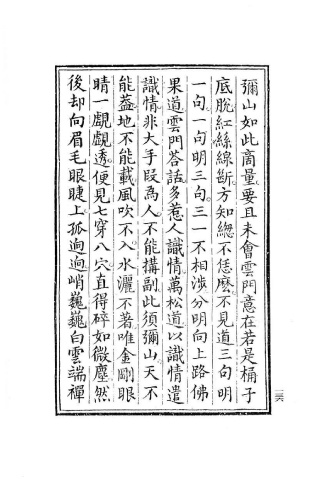 彌山如此商量要且未會雲門意在若是桶子
底脫紅絲線斷方知總不恁麼不見道三句明
一句一句明三句三一不相涉分明向上路佛
果道雲門答話多惹人識情萬松道以識情遣
識情非大手叚為人不能搆副此須彌山天不
能葢地不能載風吹不入水灑不著唯金剛眼
睛一覷覷透便見七穿八穴直得碎如微塵然
後却向眉毛眼睫上孤逈逈峭巍巍白雲端禪